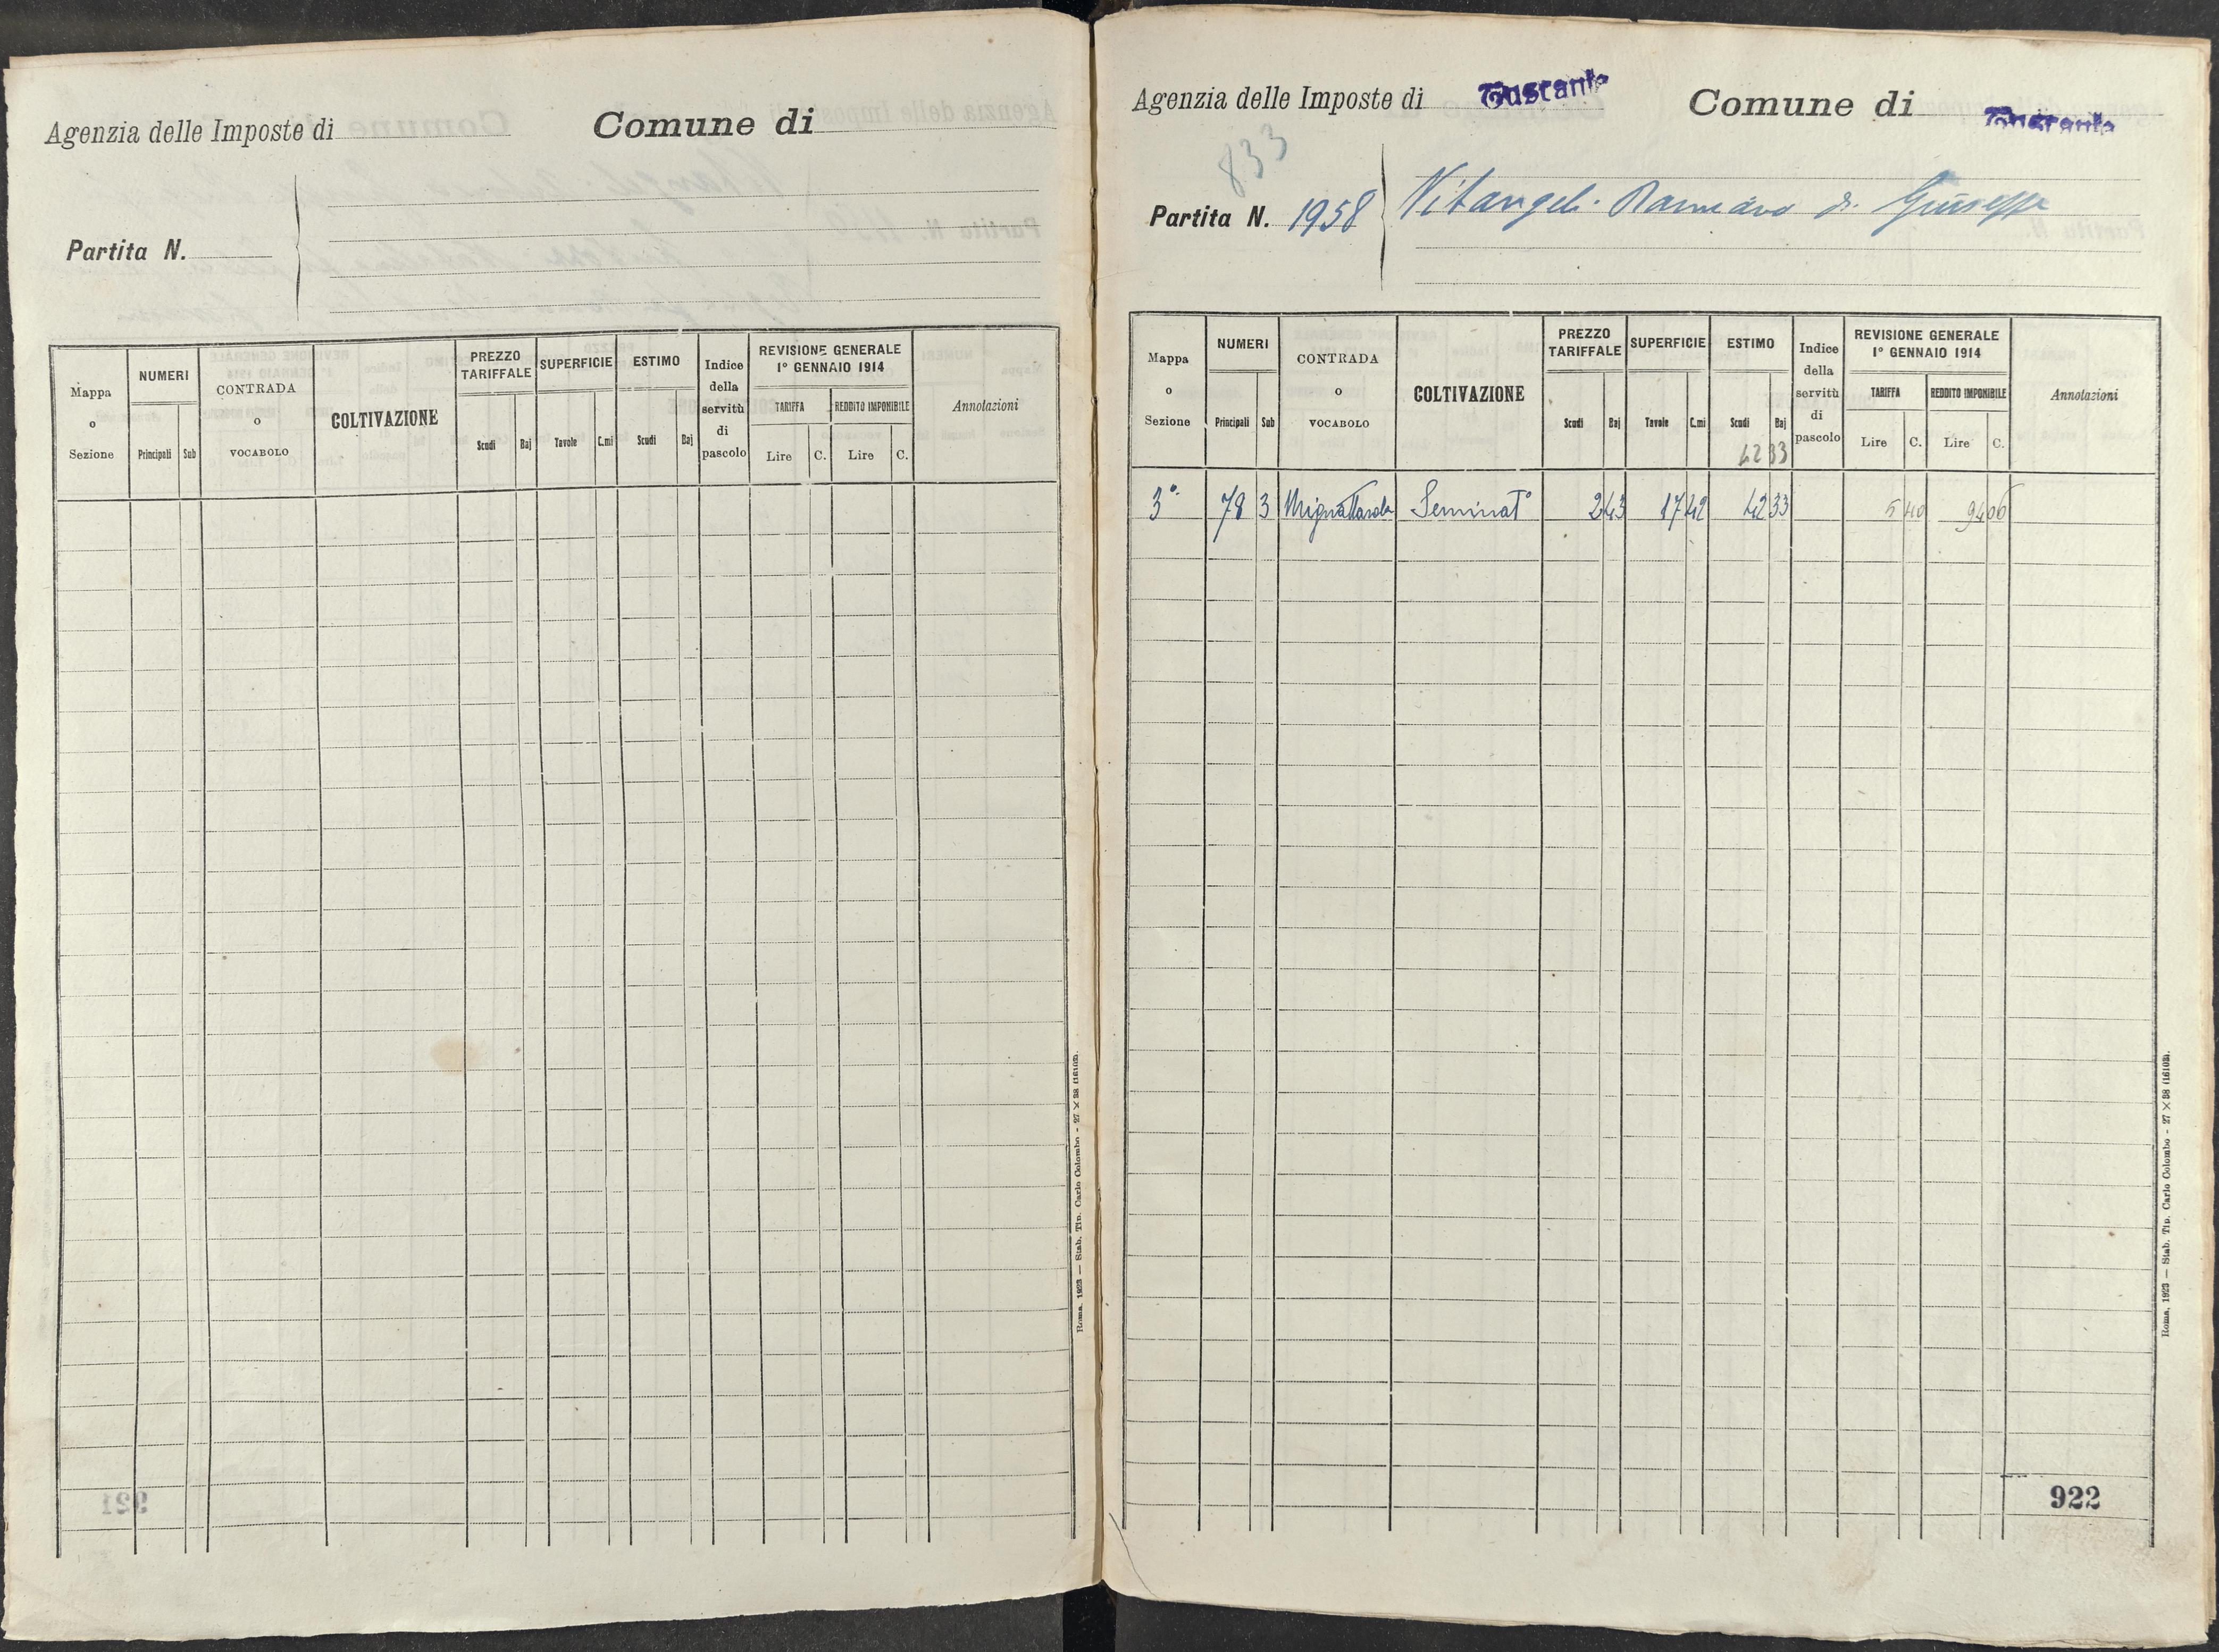 Agenzia delle Imposte di
Comune di
Partita N.
Mappa o Sezione
NUMERI
Principali Sub
CONTRADA O VOCABOLO
COLTIVAZIONE
PREZZO TARIFFALE
Scudi Baj
SUPERFICIE
Tavole C.mi
ESTIMO
Scudi Baj
Indice della servitù di pascolo
REVISIONE GENERALE 1° GENNAIO 1914
TARIFFA
Lire C.
REDDITO IMPONIBILE
Lire C.
Annotazioni
Roma, 1923 — Stab. Tip. Carlo Colombo - 27 × 38
Agenzia delle Imposte di
Comune di
833
Partita N. 1958
Vitangeli di Giuseppe
Mappa o Sezione
NUMERI
Principali Sub
CONTRADA O VOCABOLO
COLTIVAZIONE
PREZZO TARIFFALE
Scudi Baj
SUPERFICIE
Tavole C.mi
ESTIMO
Scudi Baj
42 33
Indice della servitù di pascolo
REVISIONE GENERALE 1° GENNAIO 1914
TARIFFA
Lire C.
REDDITO IMPONIBILE
Lire C.
Annotazioni
3° 78 3 Seminat° 2 43 17 42 42 33 5 40 94 06
Roma, 1923 — Stab. Tip. Carlo Colombo - 27 × 38
922